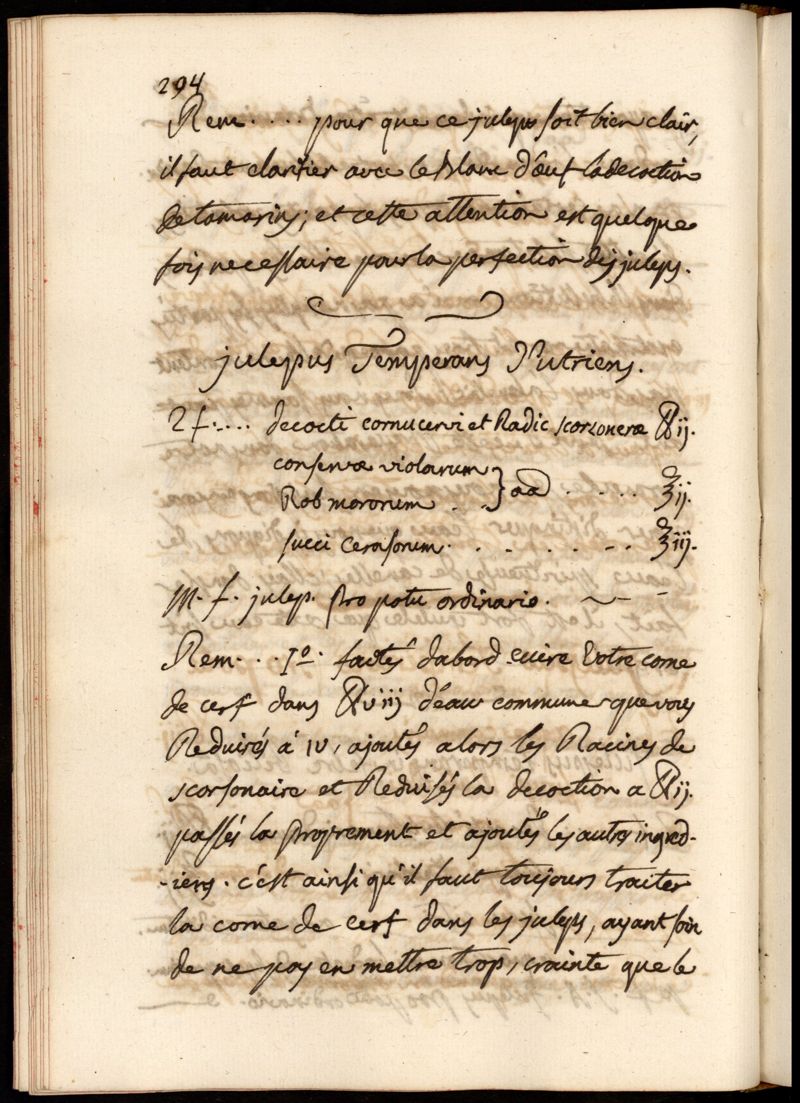 294
Rem.... pour que ce juleps soit bien clair,
il faut clarifier avec le Blanc d'œuf la decoction
de tamarins; et cette attention est quelque
fois necessaire pour la perfection des juleps.
julepus Temperans Nutriens.
♃.... decocti cornu cervi et Radic scorzoneræ ℔ij.
conservæ violarum
Rob mororum . . } aa . . . . . ℥ij.
succi Cerasorum . . . . . . . ℥iij.
M. f. julep. pro potu ordinario.
Rem... 1º. faités d'abord cuire votre corne
de cerf dans ℔viij d'eau commune que vous
Reduirés à iv, ajoutés alors les Racines de
scorsonaire et Reduisés la decoction a ℔ij.
passés la proprement et ajoutés les autres ingred-
-iens. c'est ainsi qu'il faut toujours traiter
la corne de cerf dans les juleps, ayant soin
de ne pas en mettre trop, crainte que le